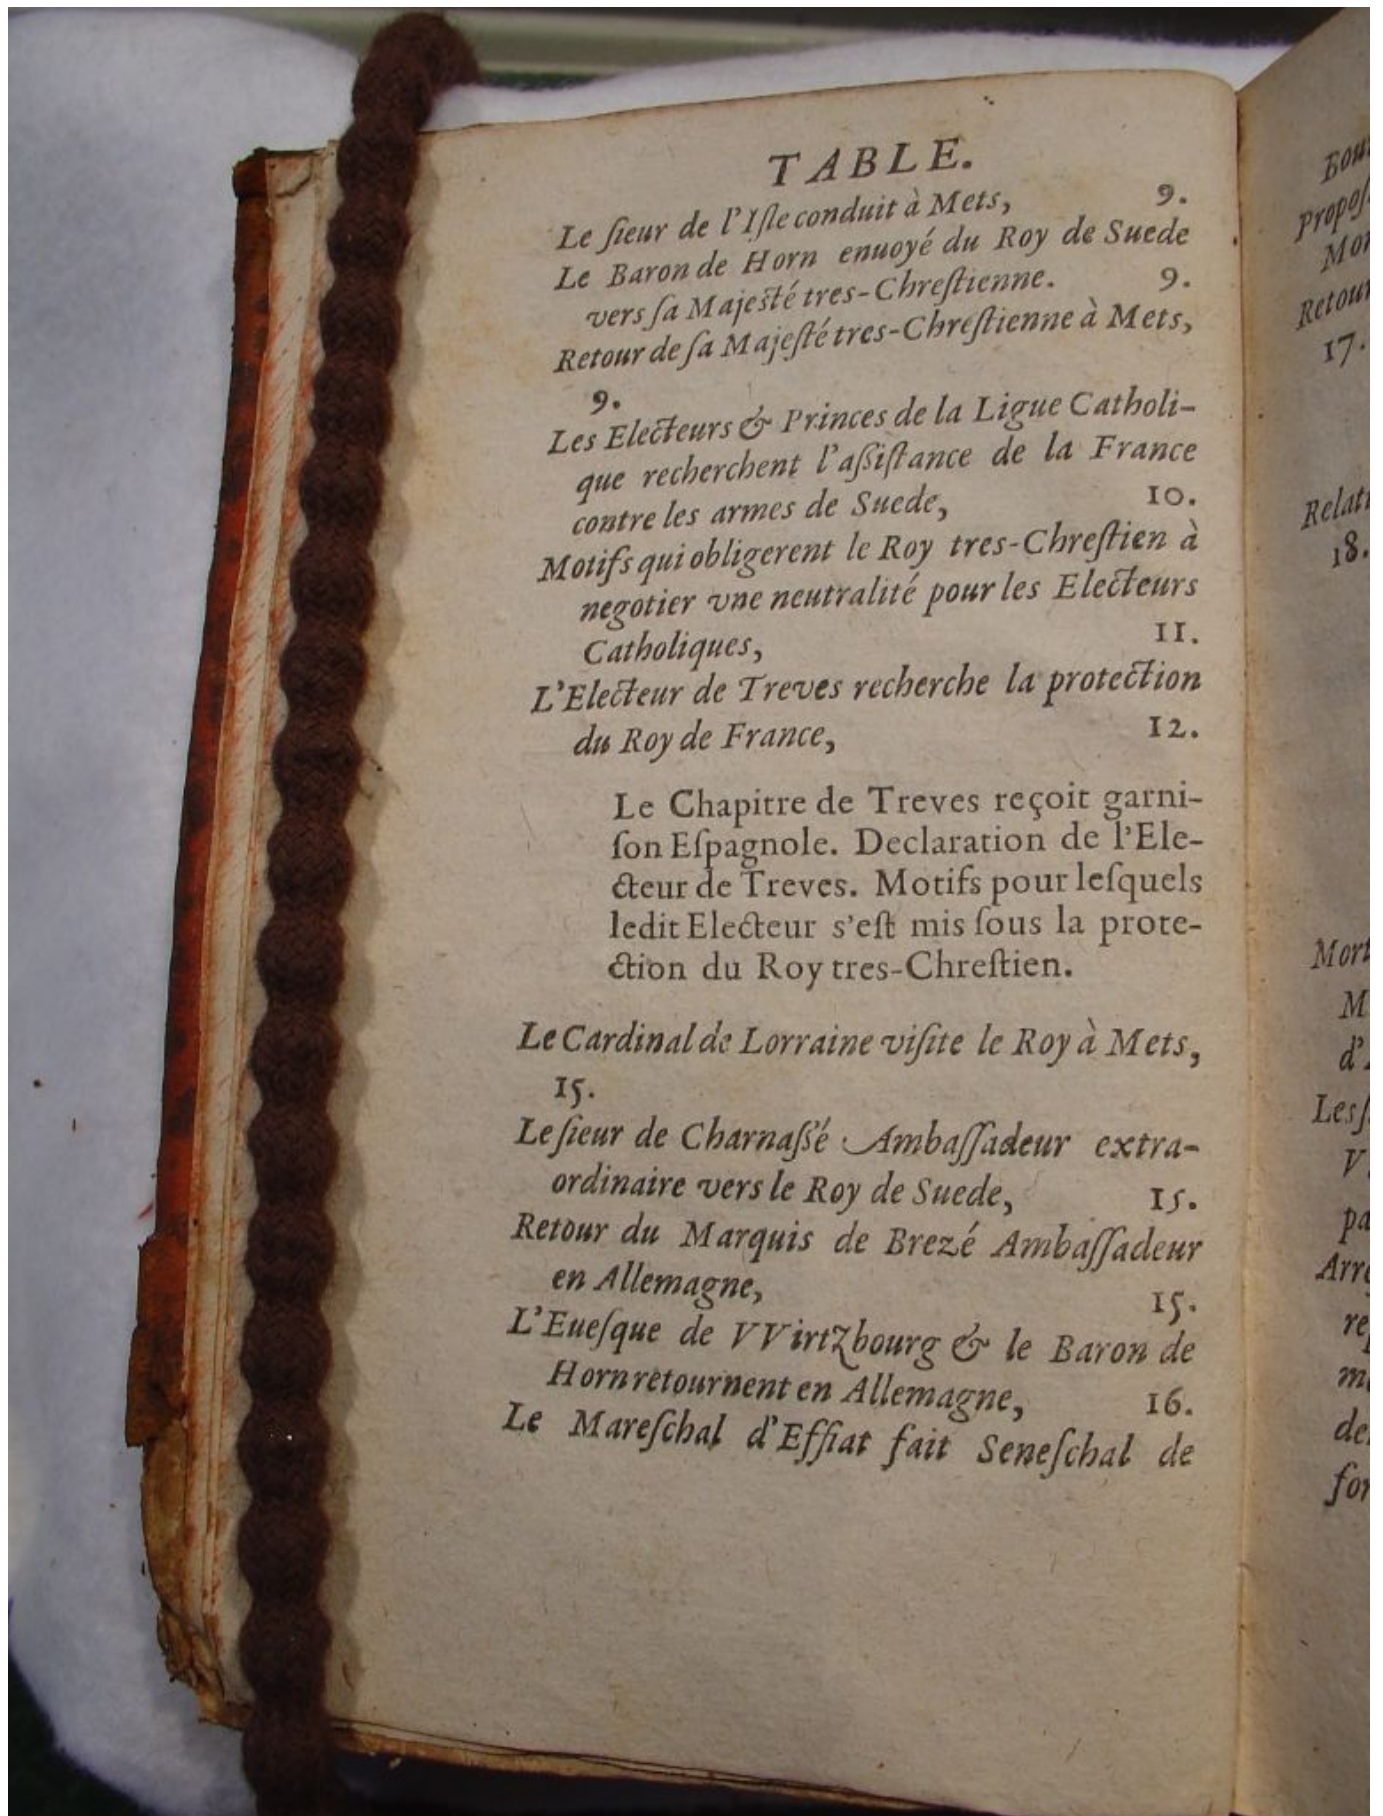 TABLE.
Le ſieur de l'Iſle conduit à Mets, 9.
Le Baron de Horn enuoyé du Roy de Suede
vers ſa Majeſté tres-Chreſtienne. 9.
Retour de ſa Majeſté tres-Chreſtienne à Mets,
9.
Les Electeurs & Princes de la Ligue Catholi-
que recherchent l'aſsiſtance de la France
contre les armes de Suede, 10.
Motifs qui obligerent le Roy tres-Chreſtien à
negotier vne neutralité pour les Electeurs
Catholiques, 11.
L'Electeur de Treves recherche la protection
du Roy de France, 12.
Le Chapitre de Treves reçoit garni-
ſon Eſpagnole. Declaration de l'Ele-
cteur de Treves. Motifs pour leſquels
ledit Electeur s'eſt mis ſous la prote-
ction du Roy tres-Chreſtien.
Le Cardinal de Lorraine viſite le Roy à Mets,
15.
Le ſieur de Charnaſsé Ambaſſadeur extra-
ordinaire vers le Roy de Suede, 15.
Retour du Marquis de Brezé Ambaſſadeur
en Allemagne, 15.
L'Eueſque de VVirtzbourg & le Baron de
Horn retournent en Allemagne, 16.
Le Mareſchal d'Effiat fait Seneſchal de
Retour
17.
18.
Mort
M
d'
V
pa